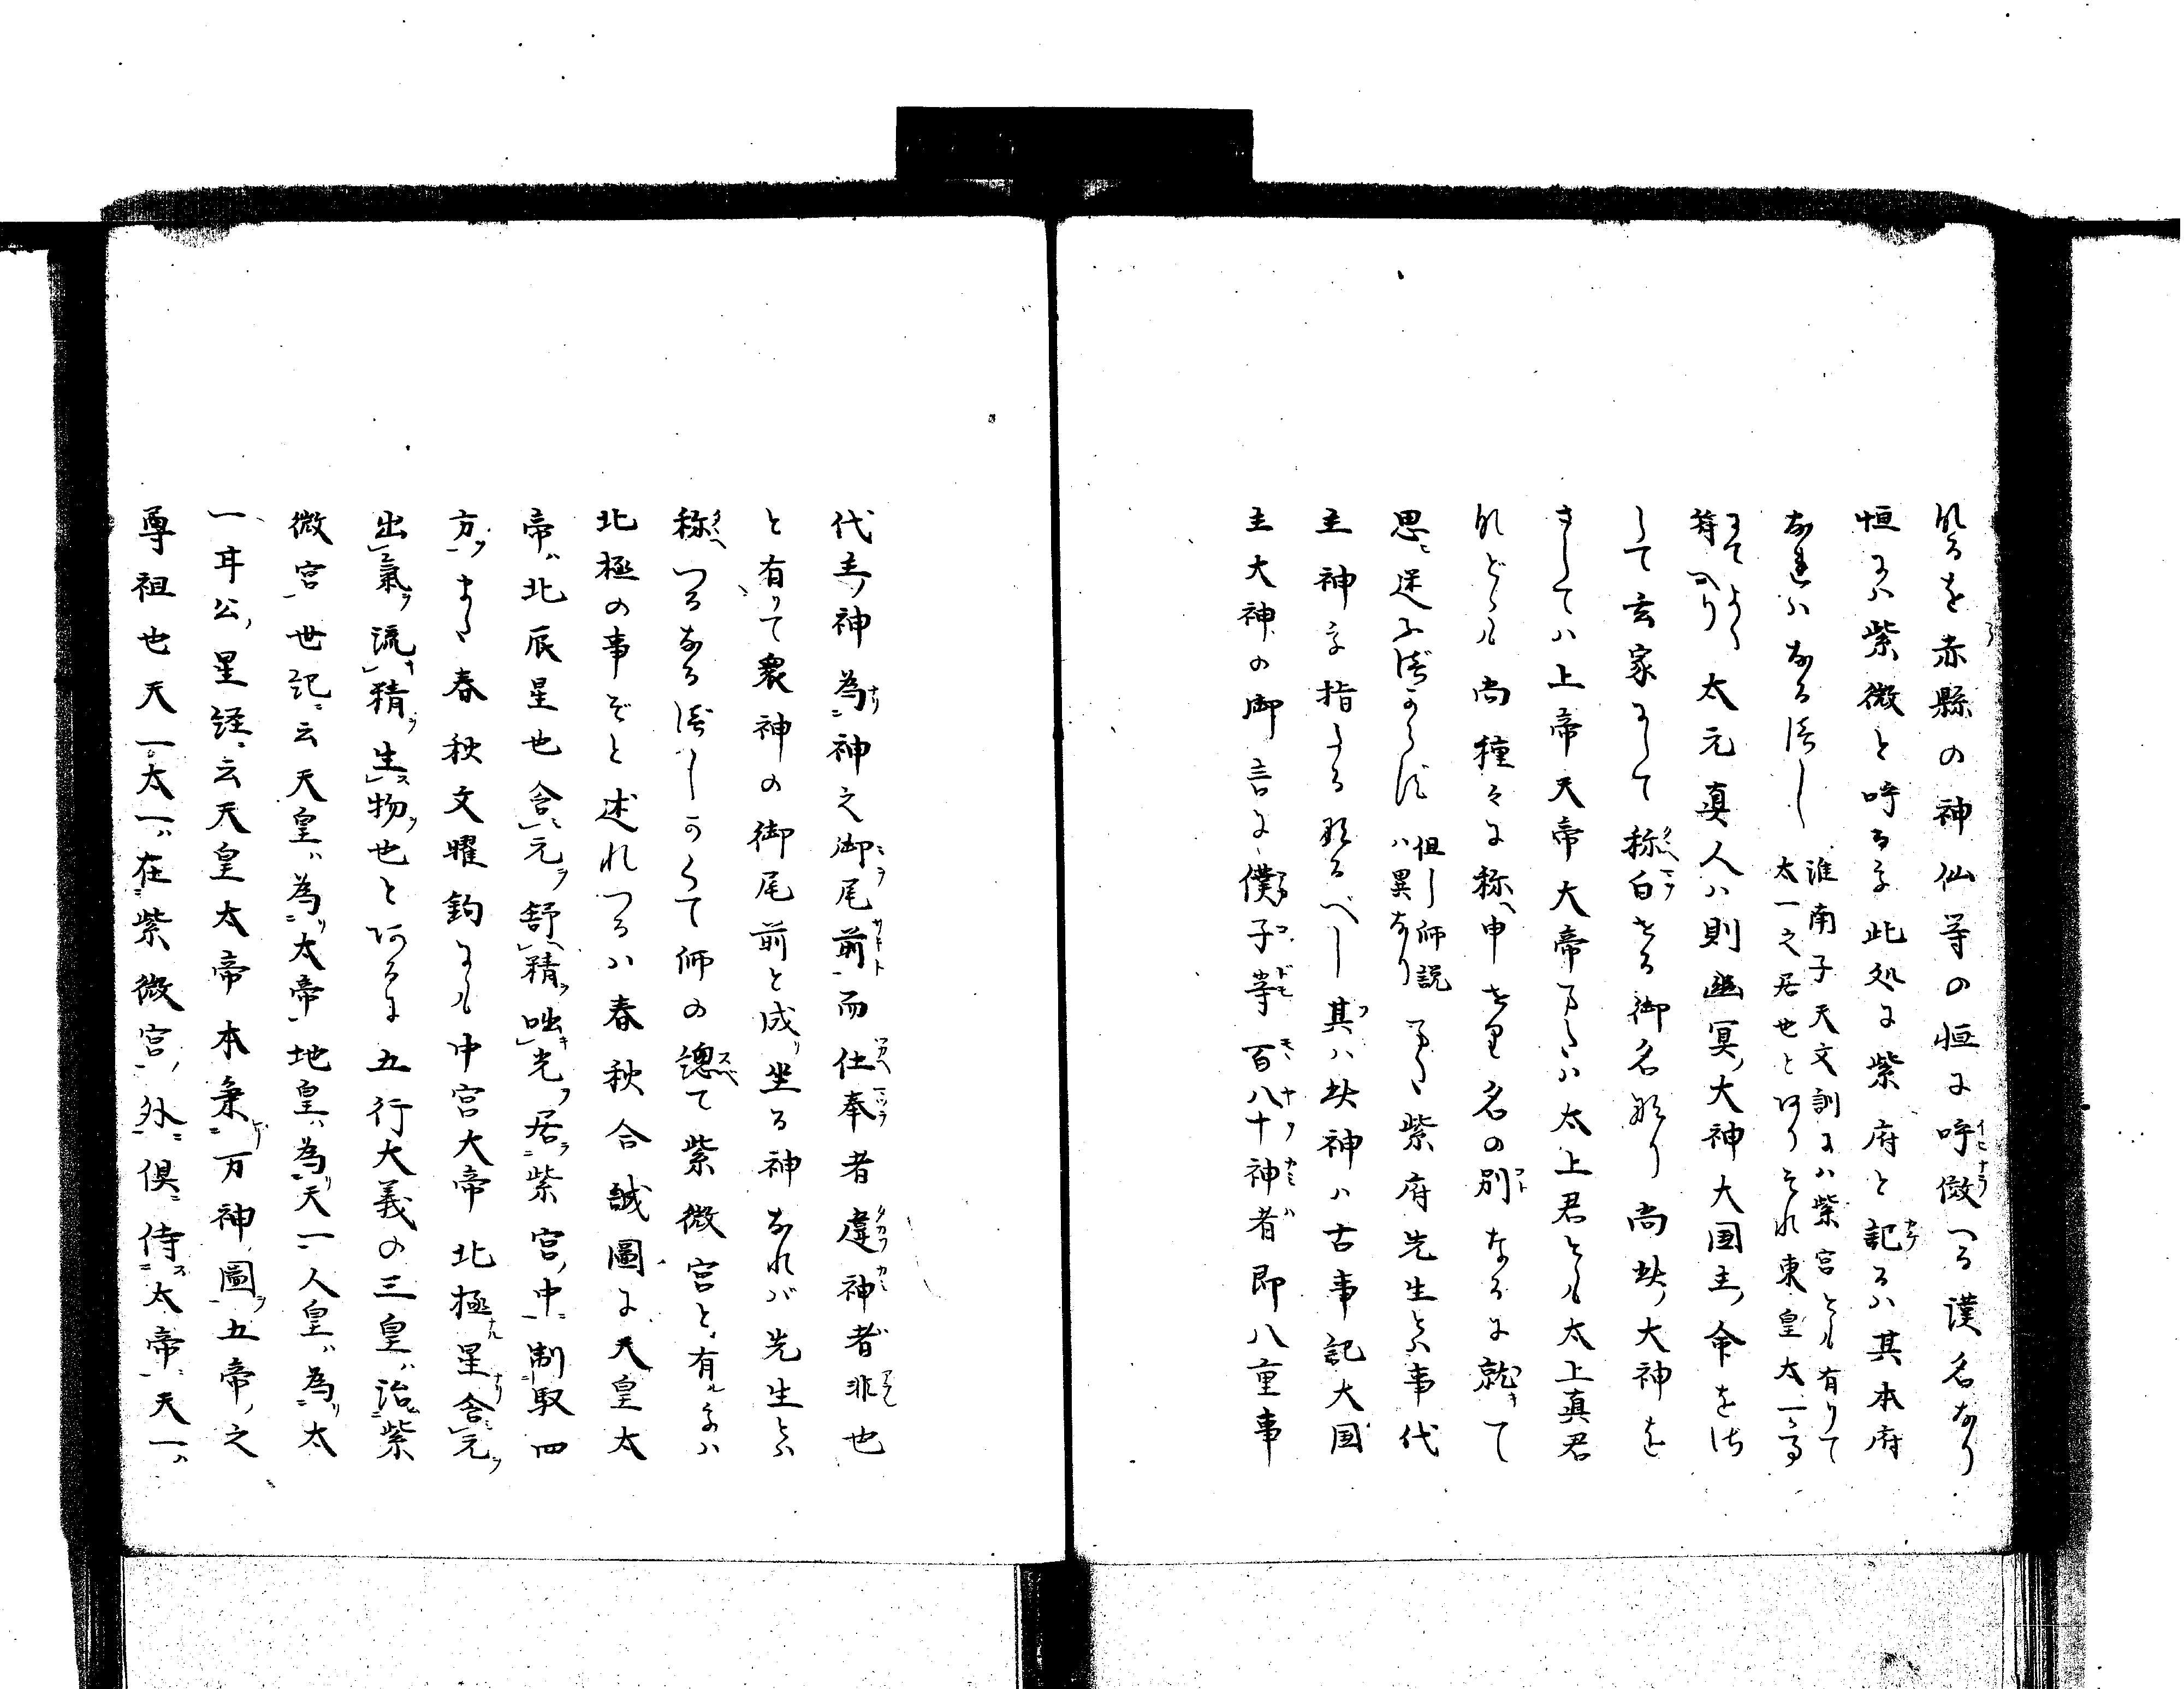 なるを赤縣の神仙等の恒に呼做へる謹名なり
恒には紫微と呼るを此処に紫府と記るは其本府
なればなるべし
淮南子天文訓には紫宮とも有りて
太一之居也とありそれ東皇太一なり
太元真人は則幽冥大神大国主命を
して玄家にして称白せる御名なり尚此大神を
さしては上帝天帝大帝または太上君とも太上真君
などとも尚種々に称へ申せり名の別なるに就て
思ニ迷ふべからず
但し師説
は異なり
また紫府先生とは事代
主神を指たるなるべし其は此神は古事記大国
主大神の御言に僕子等百八十神者即八重事
代主神為神之御尾前而仕奉者違神者非也
と有りて衆神の御尾前と成り坐る神なれば先生とは
称へつるなるべしかくて師の總て紫微宮と有るをば
北極の事ぞと述れつるは春秋合誠圖に天皇太
帝ハ北辰星也含元ヲ舒精ヲ吐光ヲ居紫宮ノ中ニ制馭四
方ヲまた春秋文曜鈎にも中宮大帝北極星含元ヲ
出氣ヲ流精ヲ生物ヲ也とあるに五行大義の三皇ハ治紫
微宮世記ニ云天皇ハ為リ太帝地皇ハ為リ天一人皇ハ為リ太
一甘公ノ星経ニ云天皇太帝本秉万神圖ヲ五帝ノ之
尊祖也天一太一ハ在紫微宮ノ外ニ倶ニ侍ス太帝ニ天一ハ